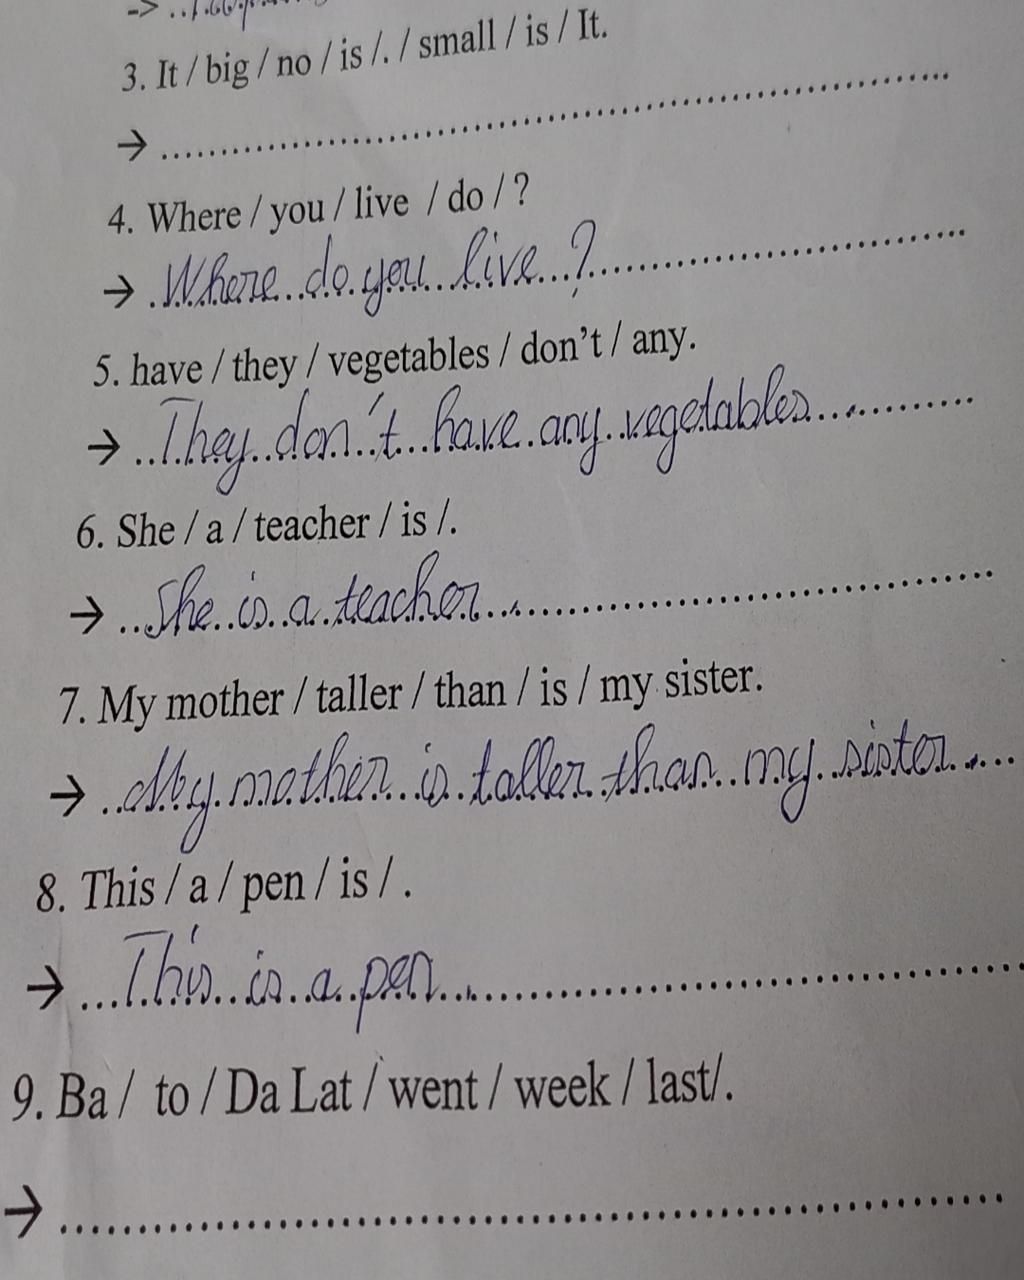 3. It / big / no / is /. / small / is / It.
→ ........................................
4. Where / you / live / do / ?
→ Where do you live ?
5. have / they / vegetables / don't / any.
→ They don't have any vegetables.
6. She / a / teacher / is /.
→ She is a teacher.
7. My mother / taller / than / is / my sister.
→ My mother is taller than my sister.
8. This / a / pen / is / .
→ This is a pen.
9. Ba / to / Da Lat / went / week / last/.
→ ........................................